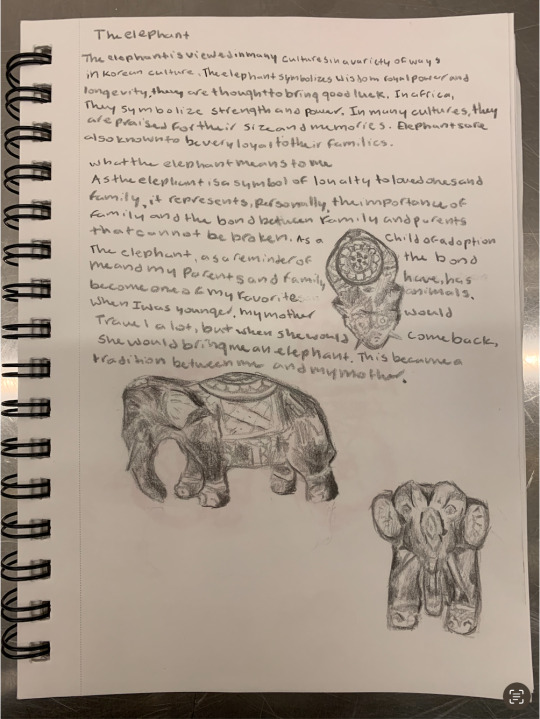 The elephant
The elephant is viewed in many cultures in a variety of ways
in Korean culture. The elephant symbolizes wisdom royal power and
longevity, they are thought to bring good luck. In africa,
They symbolize strength and power. In many cultures, they
are praised for their size and memories. Elephants are
also known to be very loyal to their families.
what the elephant means to me
As the elephant is a symbol of loyalty to loved ones and
family, it represents, personally, the importance of
family and the bond between family and parents
that cannot be broken. As a child of adoption
The elephant, as a reminder of the bond
me and my parents and family have, has
become one of my favorite animals.
When I was younger, my mother would
Travel a lot, but when she would come back,
she would bring me an elephant. This became a
tradition between me and my mother.